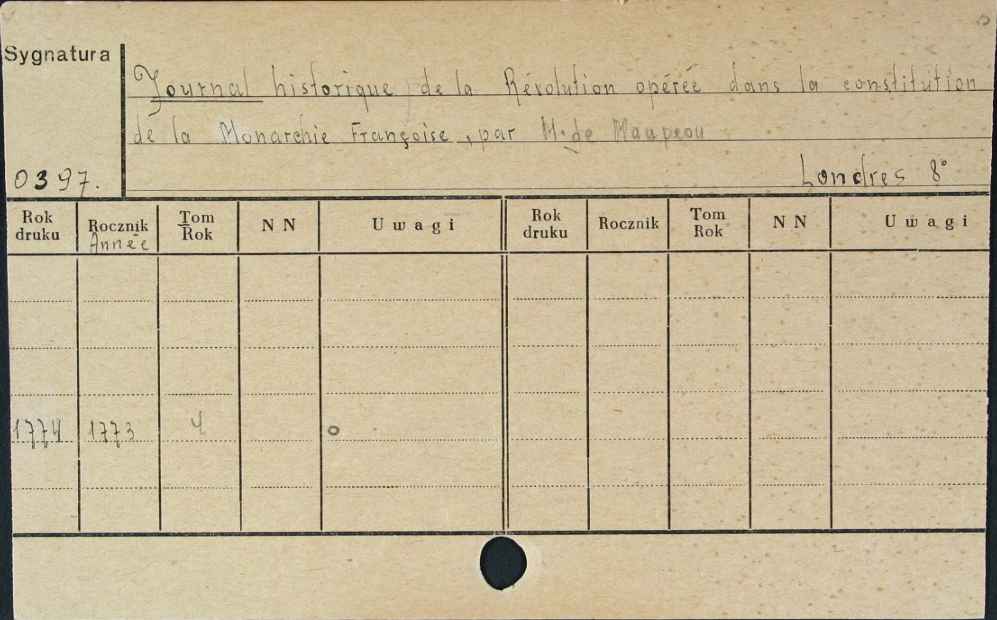 Sygnatura
Journal historique de la Révolution opérée dans la constitution
de la Monarchie Françoise, par M. de Maupeou
0397.
Londres 8°
Rok druku Rocznik Année Tom Rok N N Uwagi Rok druku Rocznik Tom Rok N N Uwagi
1774 1773 4 o